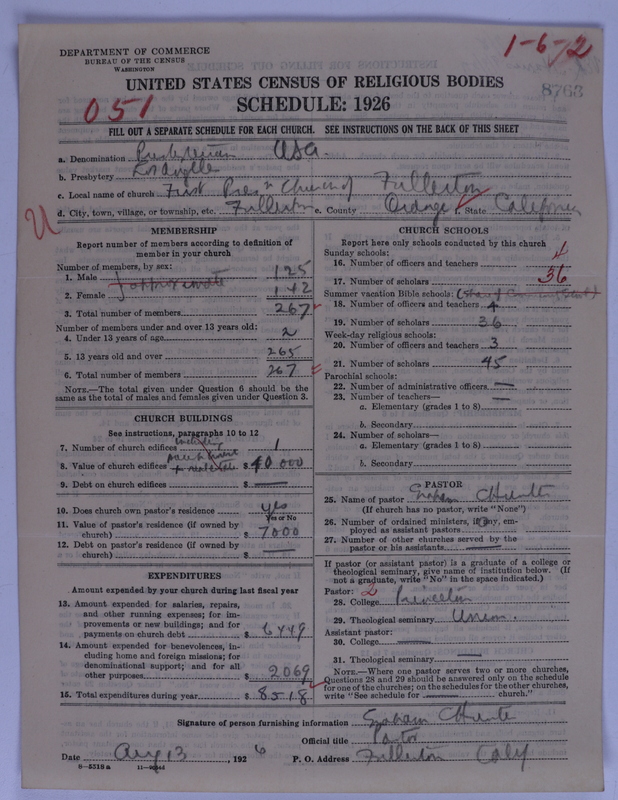 DEPARTMENT OF COMMERCE
BUREAU OF THE CENSUS
WASHINGTON
1-6-2
UNITED STATES CENSUS OF RELIGIOUS BODIES
SCHEDULE: 1926
8763
051
FILL OUT A SEPARATE SCHEDULE FOR EACH CHURCH. SEE INSTRUCTIONS ON THE BACK OF THIS SHEET
a. Denomination Presbyterian USA.
b. Presbytery
c. Local name of church First Presn Church of Fullerton
d. City, town, village, or township, etc. Fullerton e. County Orange f. State California
MEMBERSHIP
Report number of members according to definition of
member in your church
Number of members, by sex:
1. Male 125
approximate
2. Female 142
3. Total number of members 267
Number of members under and over 13 years old:
4. Under 13 years of age 2
5. 13 years old and over 265
6. Total number of members 267
NOTE.—The total given under Question 6 should be
same as the total of males and females given under Question 3.
CHURCH BUILDINGS
See instructions, paragraphs 10 to 12
7. Number of church edifices including 1
8. Value of church edifices $ 40 000
9. Debt on church edifices $ —
10. Does church own pastor's residence? yes
Yes or No
11. Value of pastor's residence (if owned by
church) $ 7000
12. Debt on pastor's residence (if owned by
church) $ —
EXPENDITURES
Amount expended by your church during last fiscal year
13. Amount expended for salaries, repairs,
and other running expenses; for im-
provements or new buildings; and for
payments on church debt $ 6449
14. Amount expended for benevolences, in-
cluding home and foreign missions; for
denominational support; and for all
other purposes $ 2069
15. Total expenditures during year $ 8518
CHURCH SCHOOLS
Report here only schools conducted by this church
Sunday schools:
16. Number of officers and teachers 4
17. Number of scholars 36
Summer vacation Bible schools:
18. Number of officers and teachers 4
19. Number of scholars 36
Week-day religious schools:
20. Number of officers and teachers 3
21. Number of scholars 45
Parochial schools:
22. Number of administrative officers —
23. Number of teachers—
a. Elementary (grades 1 to 8)
b. Secondary
24. Number of scholars—
a. Elementary (grades 1 to 8)
b. Secondary
PASTOR
25. Name of pastor Graham Hunter
(If church has no pastor, write "None")
26. Number of ordained ministers, if any, em-
ployed as assistant pastors
27. Number of other churches served by the
pastor or his assistants —
If pastor (or assistant pastor) is a graduate of a college or
theological seminary, give name of institution below. (If
not a graduate, write "No" in the space indicated.)
Pastor: 2
28. College Princeton
29. Theological seminary Union.
Assistant pastor:
30. College —
31. Theological seminary —
NOTE.—Where one pastor serves two or more churches,
Questions 28 and 29 should be answered only on the schedule
for one of the churches; on the schedules for the other churches,
write "See schedule for — church."
Signature of person furnishing information Graham Hunter
Official title Pastor
Date Aug 13, 1926 P. O. Address Fullerton Calif
8-5518 a